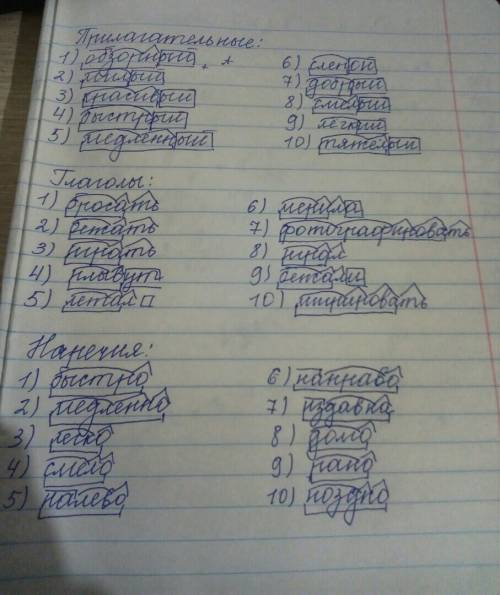 Прилагательные:
1) обзорный 6) слепой
2) милый 7) добрый
3) красивый 8) смелый
4) быстрый 9) легкий
5) медленный 10) тяжелый
Глаголы:
1) бросать 6) мерила
2) бежать 7) фотографировать
3) играть 8) играл
4) плывут 9) бежали
5) летал 10)
Наречия:
1) быстро 6) направо
2) медленно 7) издавна
3) легко 8) домо
4) смело 9) рано
5) налево 10) поздно